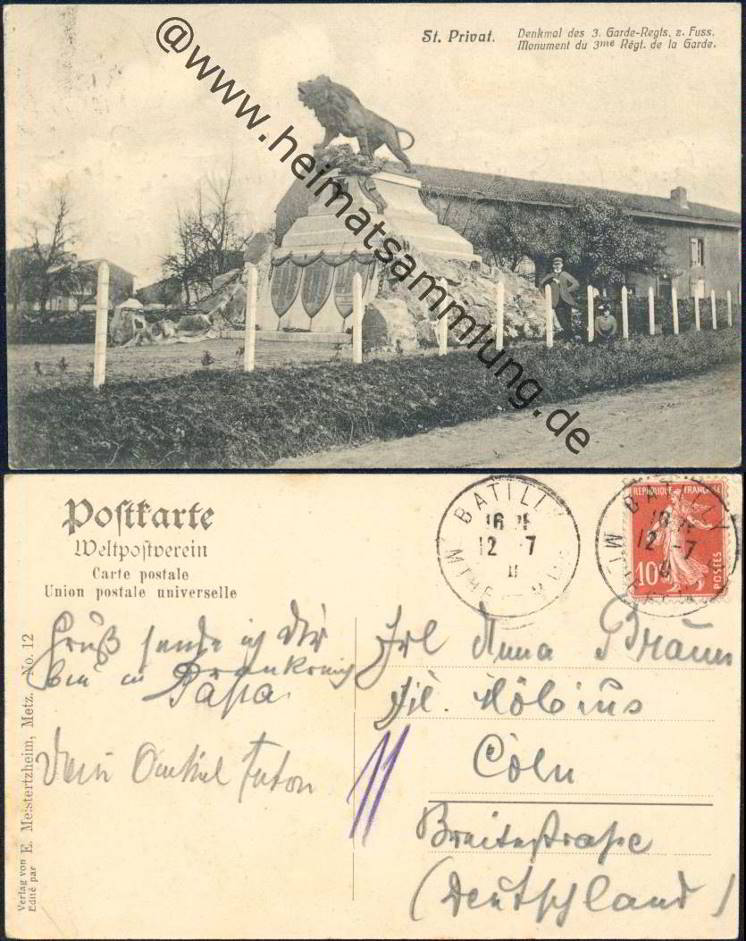 St. Privat.
Denkmal des 3. Garde-Regts. z. Fuss.
Monument du 3me Régt. de la Garde.
@www.heimatsammlung.de
Postkarte
Weltpostverein
Carte postale
Union postale universelle
BATILLY
16
12 -7
11
REPUBLIQUE FRANÇAISE
10c
POSTES
BATILLY
12 -7
Gruß sende ich Dir
bin in Frankreich
Papa.
Dein Onkel Anton
Frl Anna Braun
Cöln
Breitestraße
(Deutschland)
Verlag von
Edité par
E. Meistertzheim, Metz. No. 12